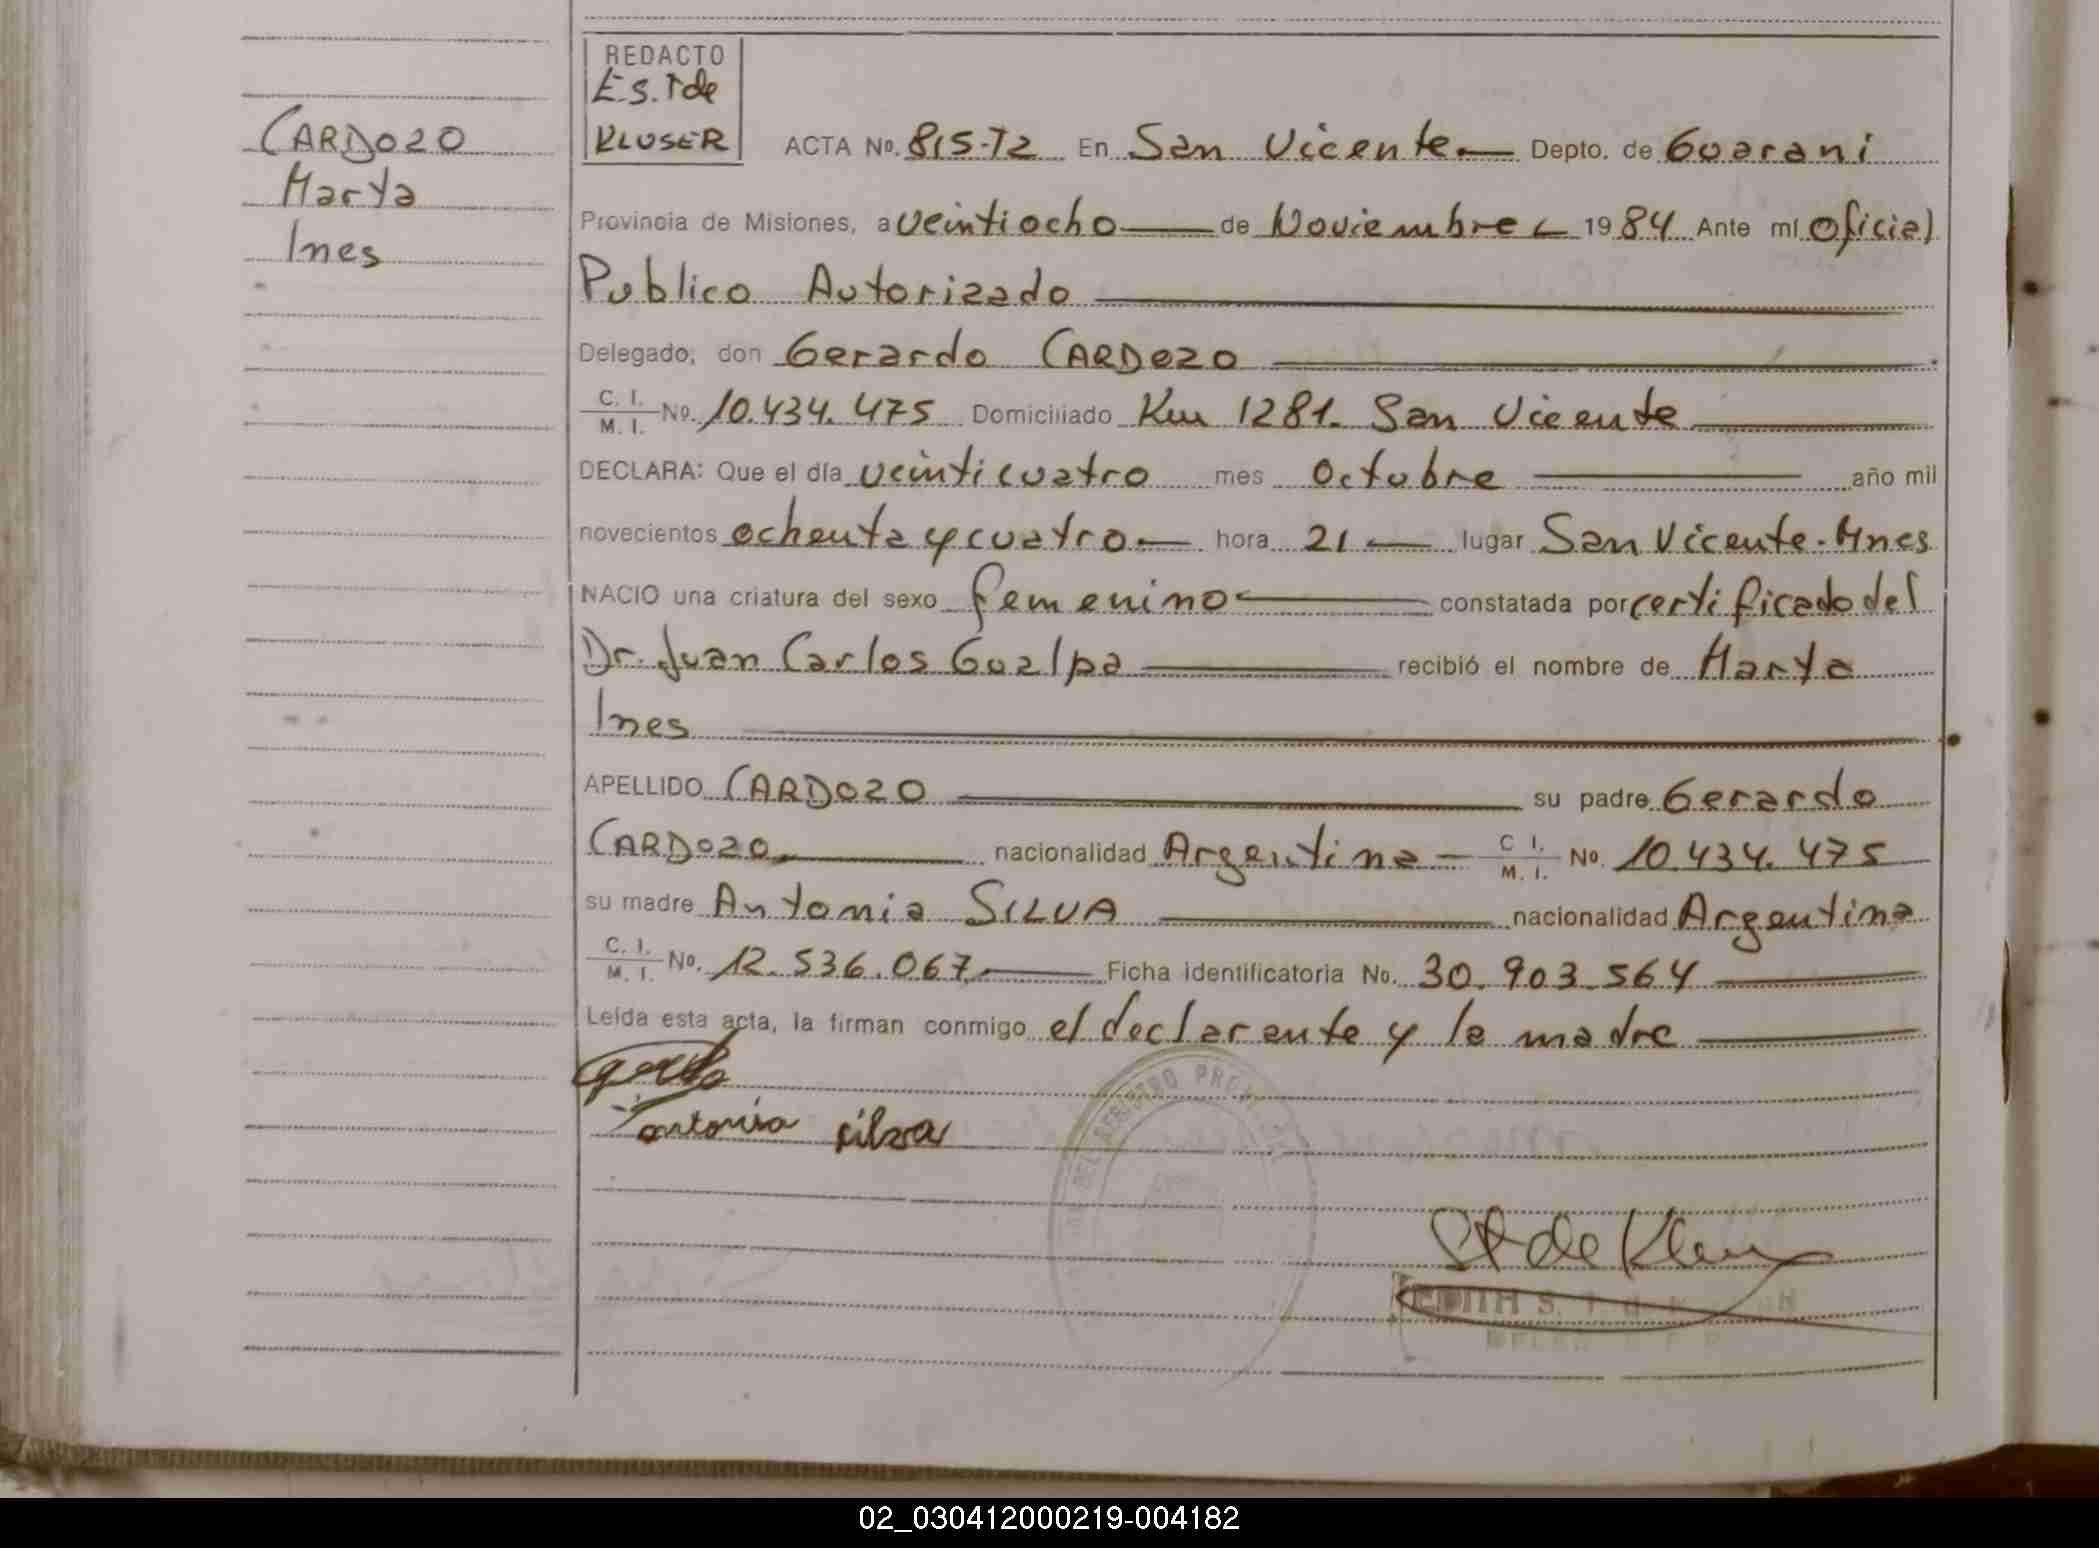 REDACTO
Es. T de
KLUSER
CARDOZO
Marta
Ines
ACTA No. 815-T2 En San Vicente Depto. de Guarani
Provincia de Misiones, a veintiocho de Noviembre 1984 Ante mí Oficial
Publico Autorizado
Delegado, don Gerardo CARDOZO
C. I.
M. I. No. 10.434.475 Domiciliado Km 1281. San Vicente
DECLARA: Que el día veinticuatro mes Octubre año mil
novecientos ochenta y cuatro hora 21 lugar San Vicente-Mnes
NACIO una criatura del sexo femenino constatada por certificado del
Dr. Juan Carlos Gualpa recibió el nombre de Marta
Ines
APELLIDO CARDOZO su padre Gerardo
CARDOZO nacionalidad Argentina C I.
M. I. No. 10.434.475
su madre Antonia SILVA nacionalidad Argentina
C. I.
M. I. No. 12.536.067 Ficha identificatoria No. 30.903.564
Leída esta acta, la firman conmigo el declarante y la madre
antonia silva
EDITH S. T. de
02_030412000219-004182